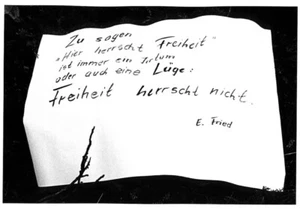 Zu sagen
"Hier herrscht Freiheit"
ist immer ein Irrtum
oder auch eine Lüge:
Freiheit herrscht nicht.
E. Fried